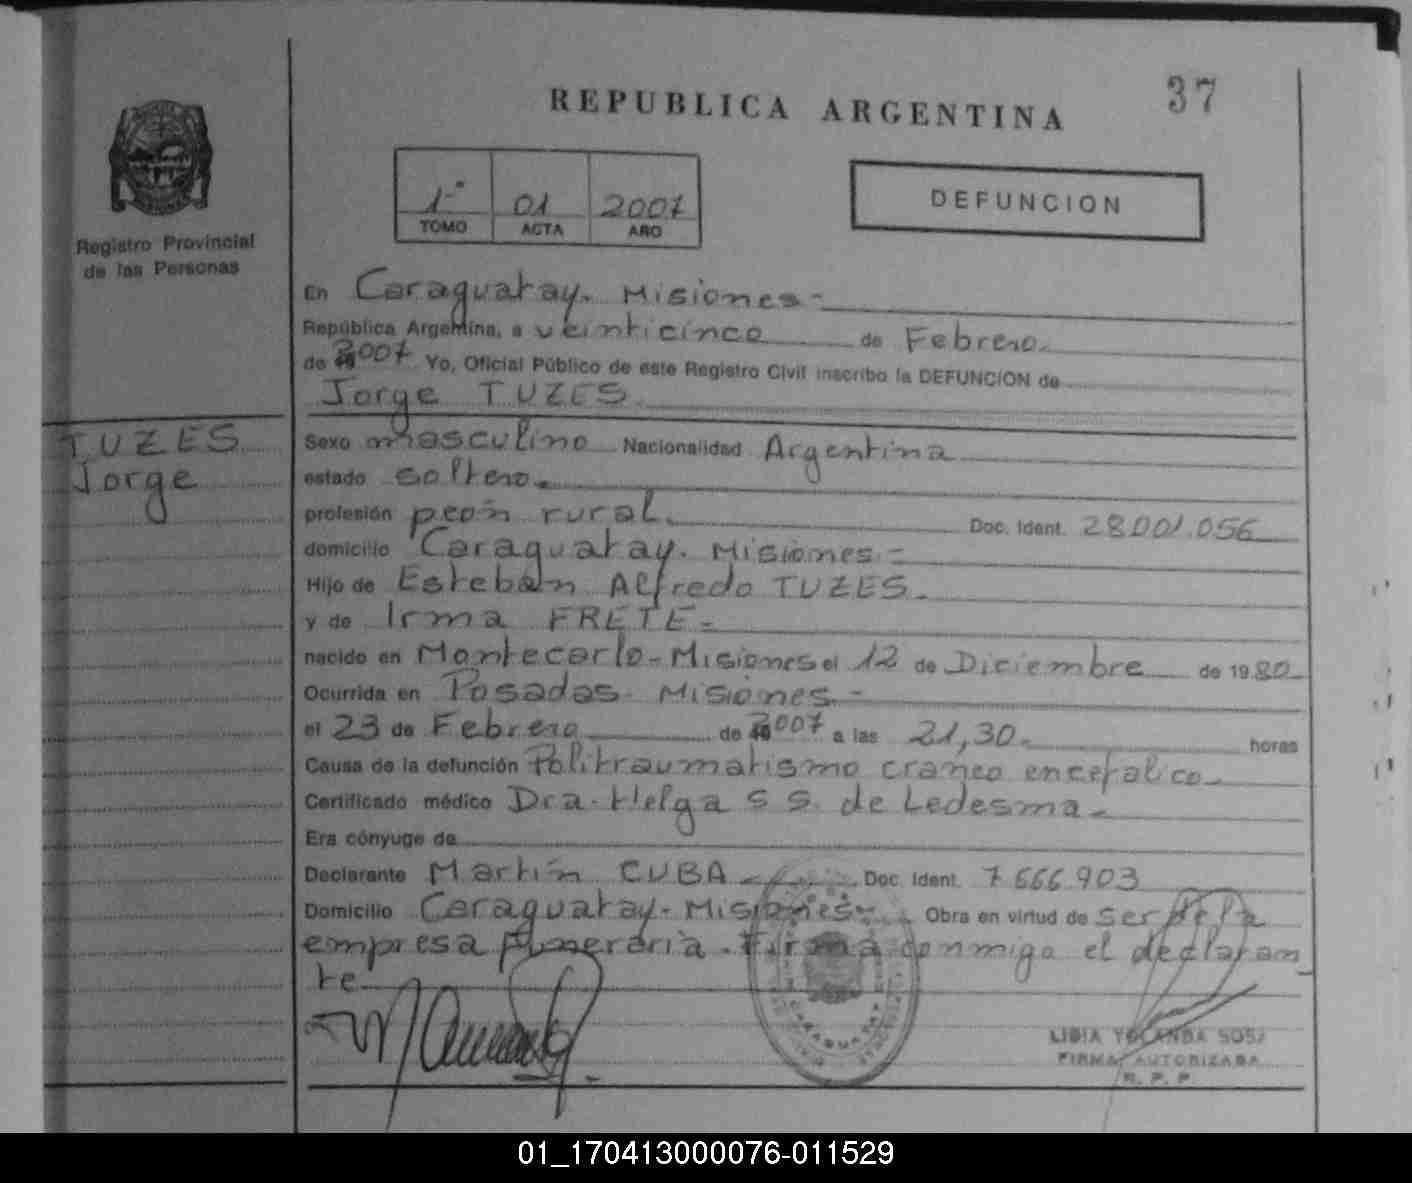 37
REPUBLICA ARGENTINA
1º 01 2007
TOMO ACTA AÑO
DEFUNCION
Registro Provincial
de las Personas
En Caraguatay. Misiones-
República Argentina, a veinticinco de Febrero
de 2007 Yo, Oficial Público de este Registro Civil inscribo la DEFUNCION de
Jorge TUZES
TUZES
Jorge
Sexo masculino Nacionalidad Argentina
estado soltero.
profesión peón rural. Doc. Ident. 28.001.056
domicilio Caraguatay. Misiones-
Hijo de Esteban Alfredo TUZES.
y de Irma FRETE-
nacido en Montecarlo-Misiones el 12 de Diciembre de 1980
Ocurrida en Posadas- Misiones-
el 23 de Febrero de 2007 a las 21,30. horas
Causa de la defunción Politraumatismo craneo encefalico-
Certificado médico Dra. Helga S S. de Ledesma-
Era cónyuge de
Declarante Martín CUBA Doc. Ident. 7.666.903
Domicilio Caraguatay- Misiones- Obra en virtud de ser de la
empresa funeraria. Firma conmigo el declaran
te
CARAGUATAY
LIDIA YOLANDA SOSA
FIRMA AUTORIZADA
R. P. P.
01_170413000076-011529